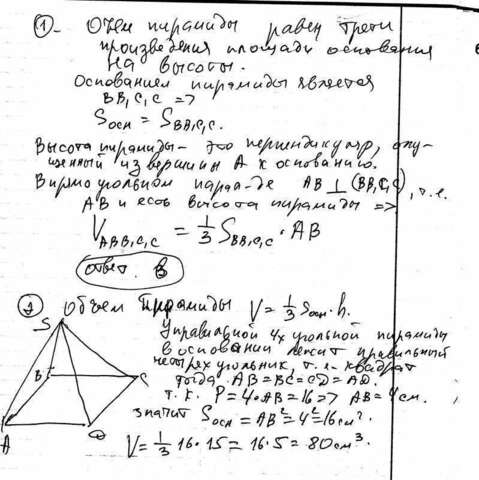 ①. Объем пирамиды равен трети
произведения площади основания
на высоты.
Основанием пирамиды является
BB₁C₁C =>
Sосн = SBB₁C₁C.
Высота пирамиды - это перпендикуляр, опу-
щенный из вершины A к основанию.
В прямоугольном парал-де AB ⊥ (BB₁C₁C), т.е.
AB и есть высота пирамиды =>
VABB₁C₁C = 1/3 SBB₁C₁C · AB
Ответ. В
② Объем пирамиды V = 1/3 Sосн · h.
S
У правильной 4х угольной пирамиды
в основании лежит правильный
четырехугольник, т.е. квадрат
B C
тогда AB = BC = CD = AD.
т.к. P = 4·AB = 16 => AB = 4 см.
значит Sосн = AB² = 4² = 16 см².
A D
V = 1/3 16·15 = 16·5 = 80 см³.